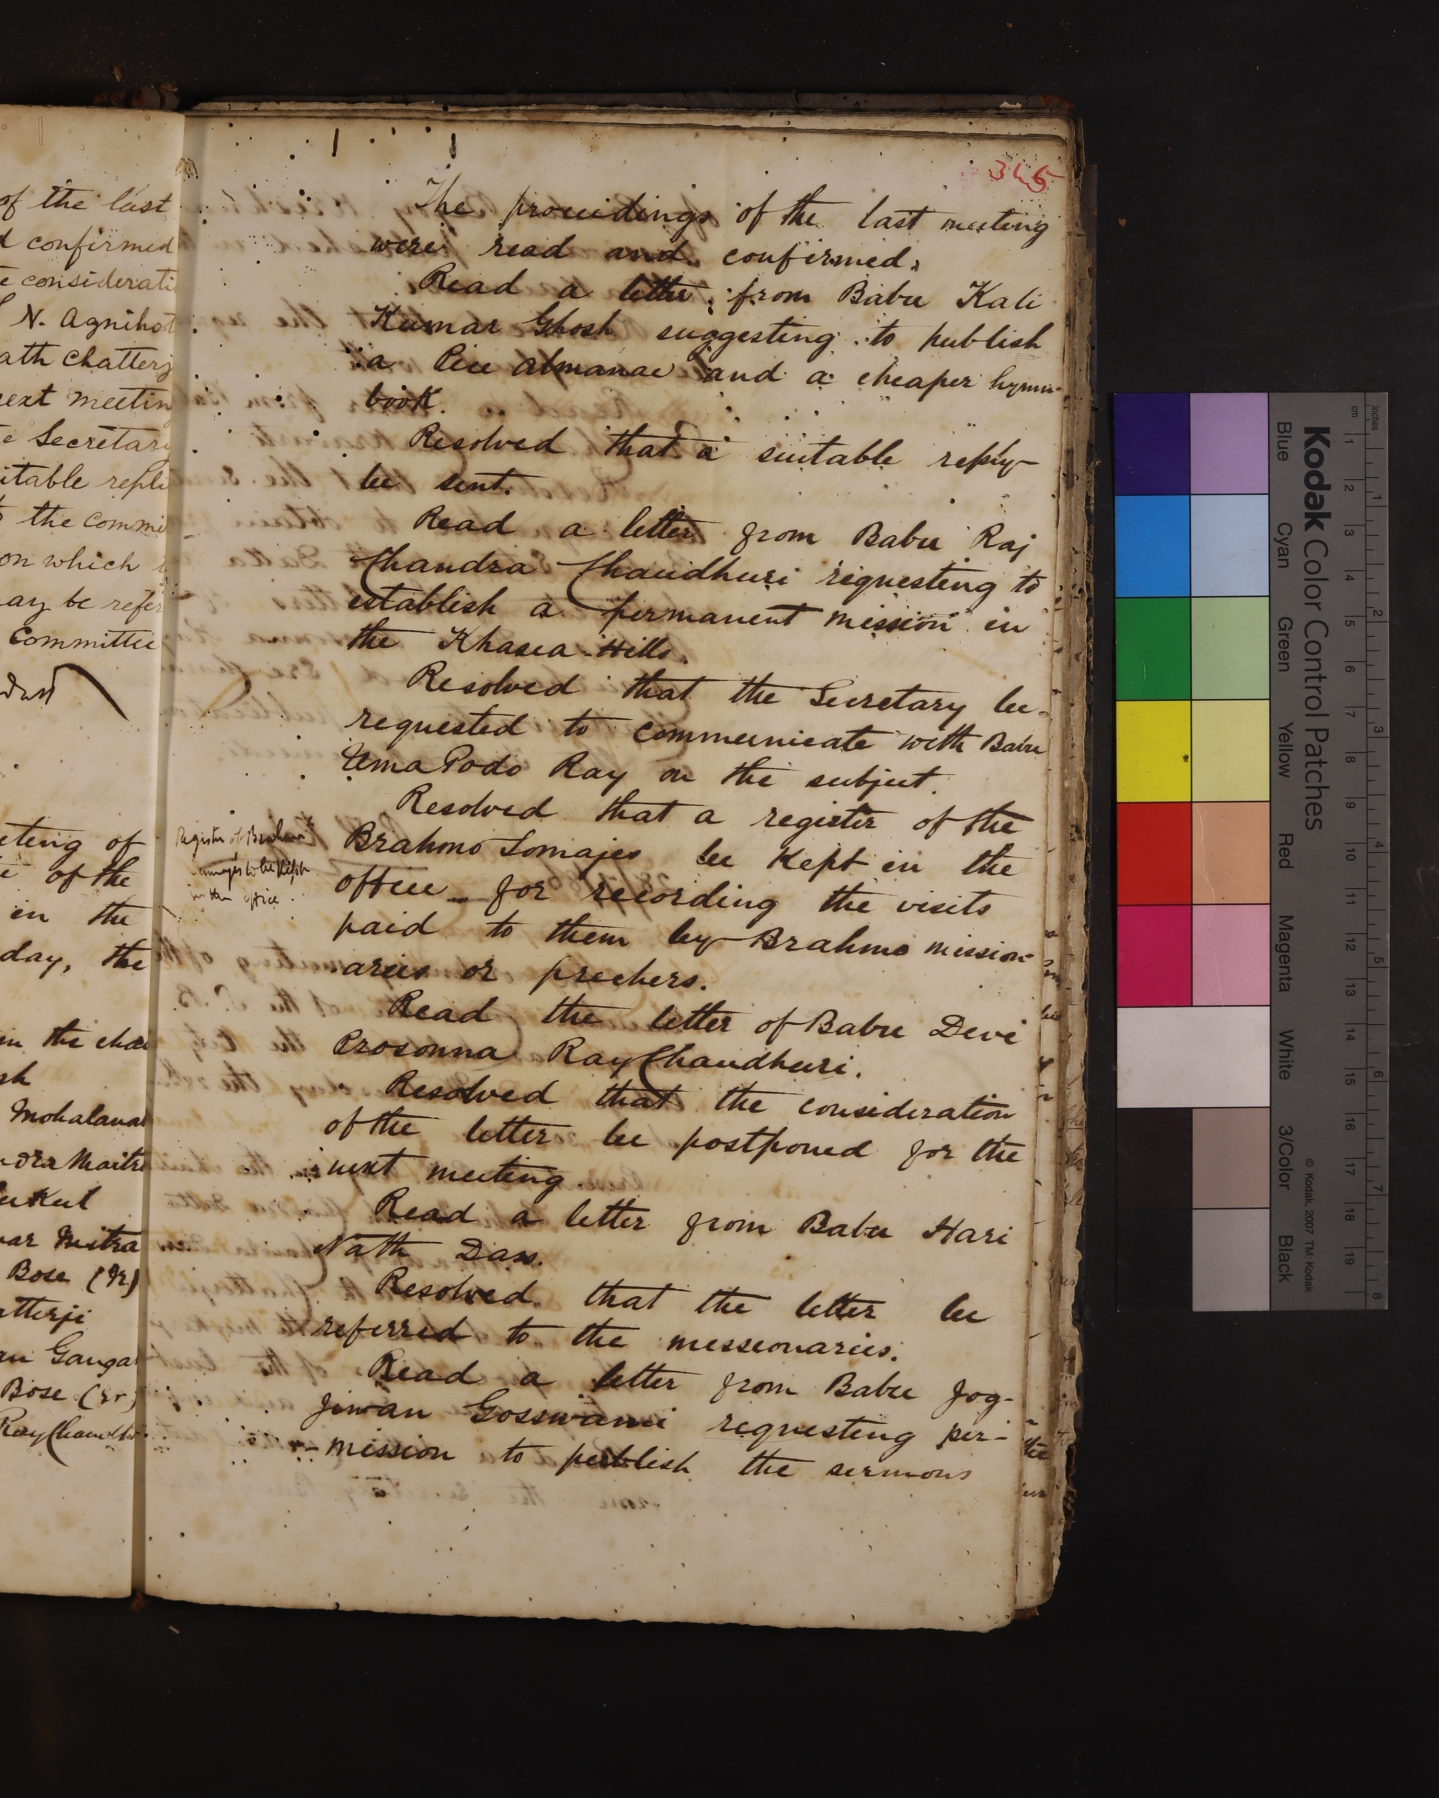 of the last
d confirmed
e considerati
N. Agnihot
ath Chatterj
ext meetin
e Secretary
itable repli
the Commi
on which
ay be refer
Committee
eting of
of the
in the
day, the
in the chai
sh
Mohalanab
ndra Maitra
ukul
ar Mitra
Bose (Jr)
atterji
Ganga
Bose (Sr)
Ray Chaudh
345
The proceedings of the last meeting
were read and confirmed.
Read a letter from Babu Kali
Kumar Ghosh suggesting to publish
a Pice almanac and a cheaper hymn-
book.
Resolved that a suitable reply
be sent.
Read a letter from Babu Raj
Chandra Chaudhuri requesting to
establish a permanent mission in
the Khasia Hills.
Resolved that the Secretary be
requested to communicate with Babu
Uma Podo Ray on the subject.
Register of Brahmo
Somajes to be kept
in the office.
Resolved that a register of the
Brahmo Somajes be kept in the
office for recording the visits
paid to them by Brahmo mission-
aries or prechers.
Read the letter of Babu Devi
Prosonna Ray Chaudhuri.
Resolved that the consideration
of the letter be postponed for the
next meeting.
Read a letter from Babu Hari
Nath Dass.
Resolved that the letter be
referred to the messionaries.
Read a letter from Babu Jog-
jiwan Gosswami requesting per-
-mission to publish the sermons
Kodak Color Control Patches
Blue Cyan Green Yellow Red Magenta White 3/Color Black
© Kodak, 2007 TM: Kodak
inches 1 2 3 4 5 6 7 8
cm 1 2 3 4 5 6 7 8 9 10 11 12 13 14 15 16 17 18 19